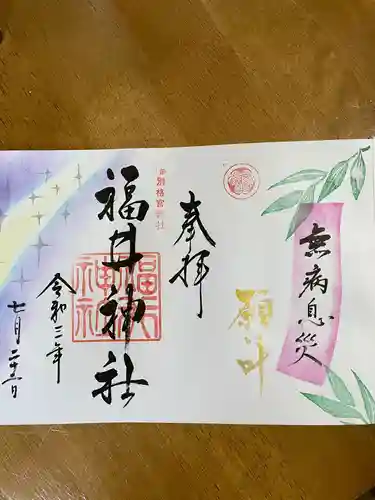 無病息災
願叶
奉拝
別格官幣社
福井神社
福井神社
令和三年
七月二十二日